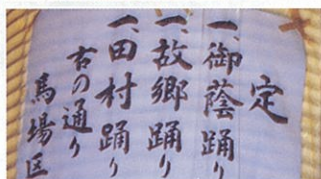 定
一、御蔭踊り
一、故郷踊り
一、田村踊り
右の通り
馬場区